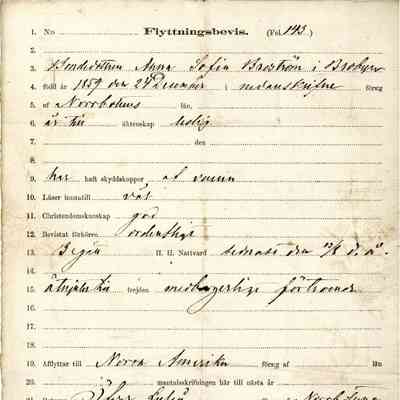 1. No Flyttningsbevis. (Fol. 143.)
2.
3. Bondedottren Anna Sofia Broström i
4. född år 1859 den 24 December i nedanskrifne förs:g
5. af Norrbottens län,
6. är till äktenskap ledig
7. den
8.
9. har haft skyddskoppor af vaccin
10. Läser innantill väl
11. Christendomskunskap god
12. Bevistat förhören ordentligt
13. Begått H. H. Nattvard den
14.
15. åtnjuter till frejden medborgerligt förtroende
16.
17.
18.
19. Afflyttar till Norra Amerika förs:g af län
20. mantalsskrifningen här till nästa år
21. Norrbottens